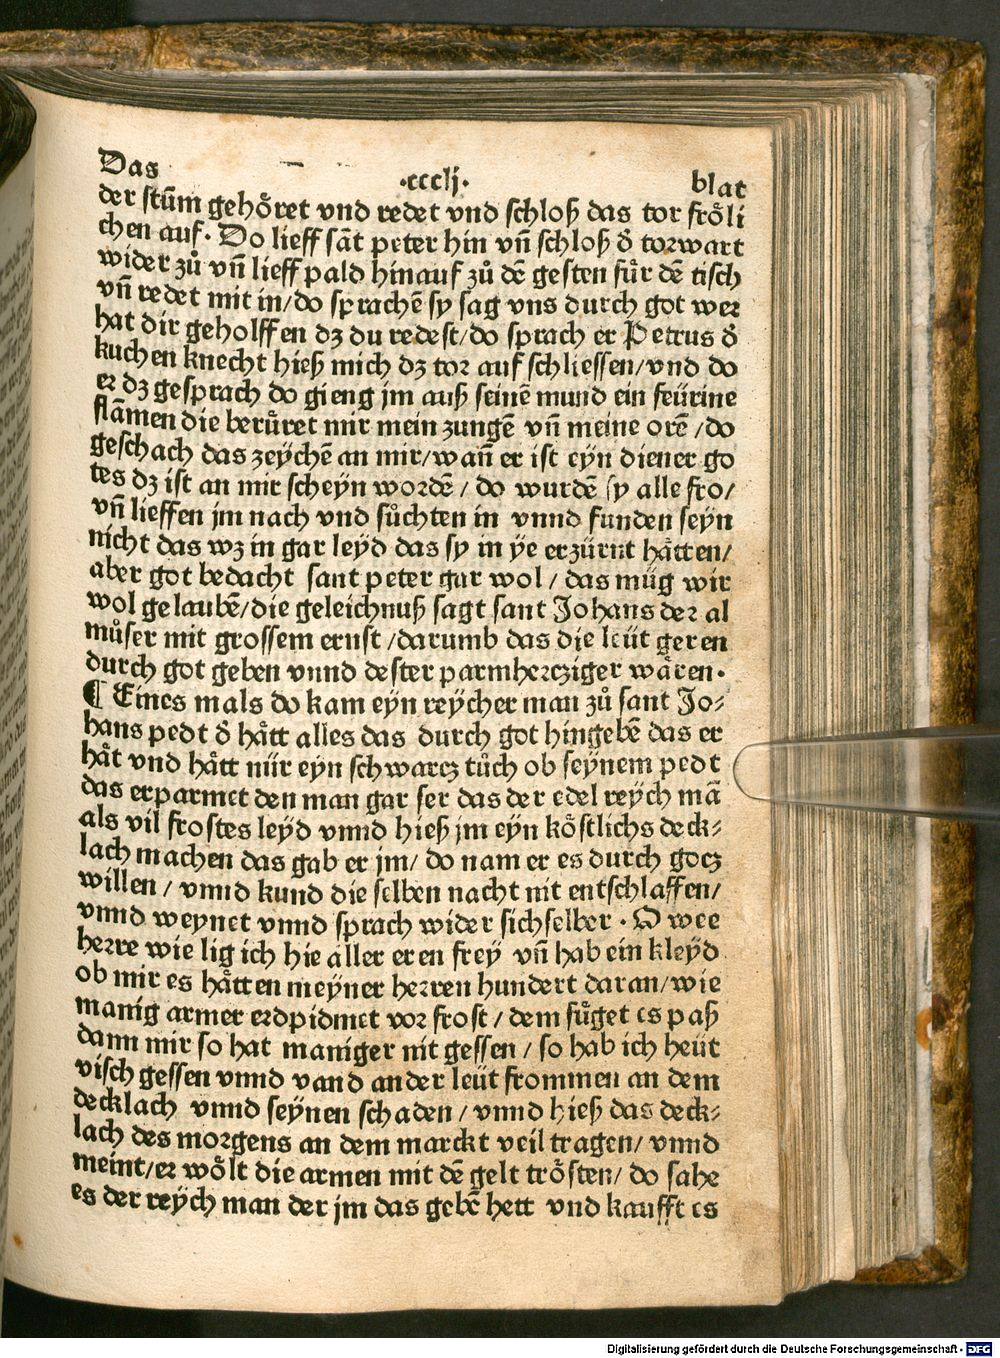 Das .cccli. blat
der stum̄ gehoͤret vnd redet vnd schloß das tor froͤli
chen auf. Do lieff sāt peter hin vn̄ schloß d̕ torwart
wider zuͦ vn̄ lieff pald hinauf zuͦ dē gesten fuͤr dē tisch
vn̄ redet mit in/do sprachē sy sag vns durch got wer
hat dir geholffen dz du redest/do sprach er Petrus d̕
kuchen knecht hieß mich dz tor auf schliessen/vnd do
er dz gesprach do gieng jm auß seinē mund ein feürine
flāmen die beruͤret mir mein zungē vn̄ meine orē/do
geschach das zeychē an mir/wan̄ er ist eyn diener go
tes dz ist an mir scheyn wordē/do wurdē sy alle fro/
vn̄ lieffen jm nach vnd suͦchten in vnnd funden seyn
nicht das wz in gar leyd das sy in ye erzürnt haͤtten/
aber got bedacht sant peter gar wol/das müg wir
wol gelaubē/die geleichnuß sagt sant Johans der al
muͦser mit grossem ernst/darumb das die leüt geren
durch got geben vnnd dester parmhercziger waͤren.
¶ Eines mals do kam eyn reycher man zuͦ sant Jo⸗
hans pedt d̕ haͤtt alles das durch got hingebē das er
haͤt vnd haͤtt nür eyn schwarcz tuͦch ob seynem pedt
das erparmet den man gar ser das der edel reych mā
als vil frostes leyd vnnd hieß jm eyn koͤstlichs deck⸗
lach machen das gab er jm/do nam er es durch gotz
willen/vnnd kund die selben nacht nit entschlaffen/
vnnd weynet vnnd sprach wider sichselber. O wee
herre wie lig ich hie aller eren frey vn̄ hab ein kleyd
ob mir es haͤtten meyner herren hundert daran/wie
manig armer erdpidmet vor frost/dem fuͤget es paß
dann mir so hat maniger nit gessen/so hab ich heüt
visch gessen vnnd vand ander leüt frommen an dem
decklach vnnd seynen schaden/vnnd hieß das deck⸗
lach des morgens an dem marckt veil tragen/vnnd
meint/er woͤlt die armen mit dē gelt troͤsten/do sahe
es der reych man der jm das gebē hett vnd kaufft es
Digitalisierung gefördert durch die Deutsche Forschungsgemeinschaft - DFG